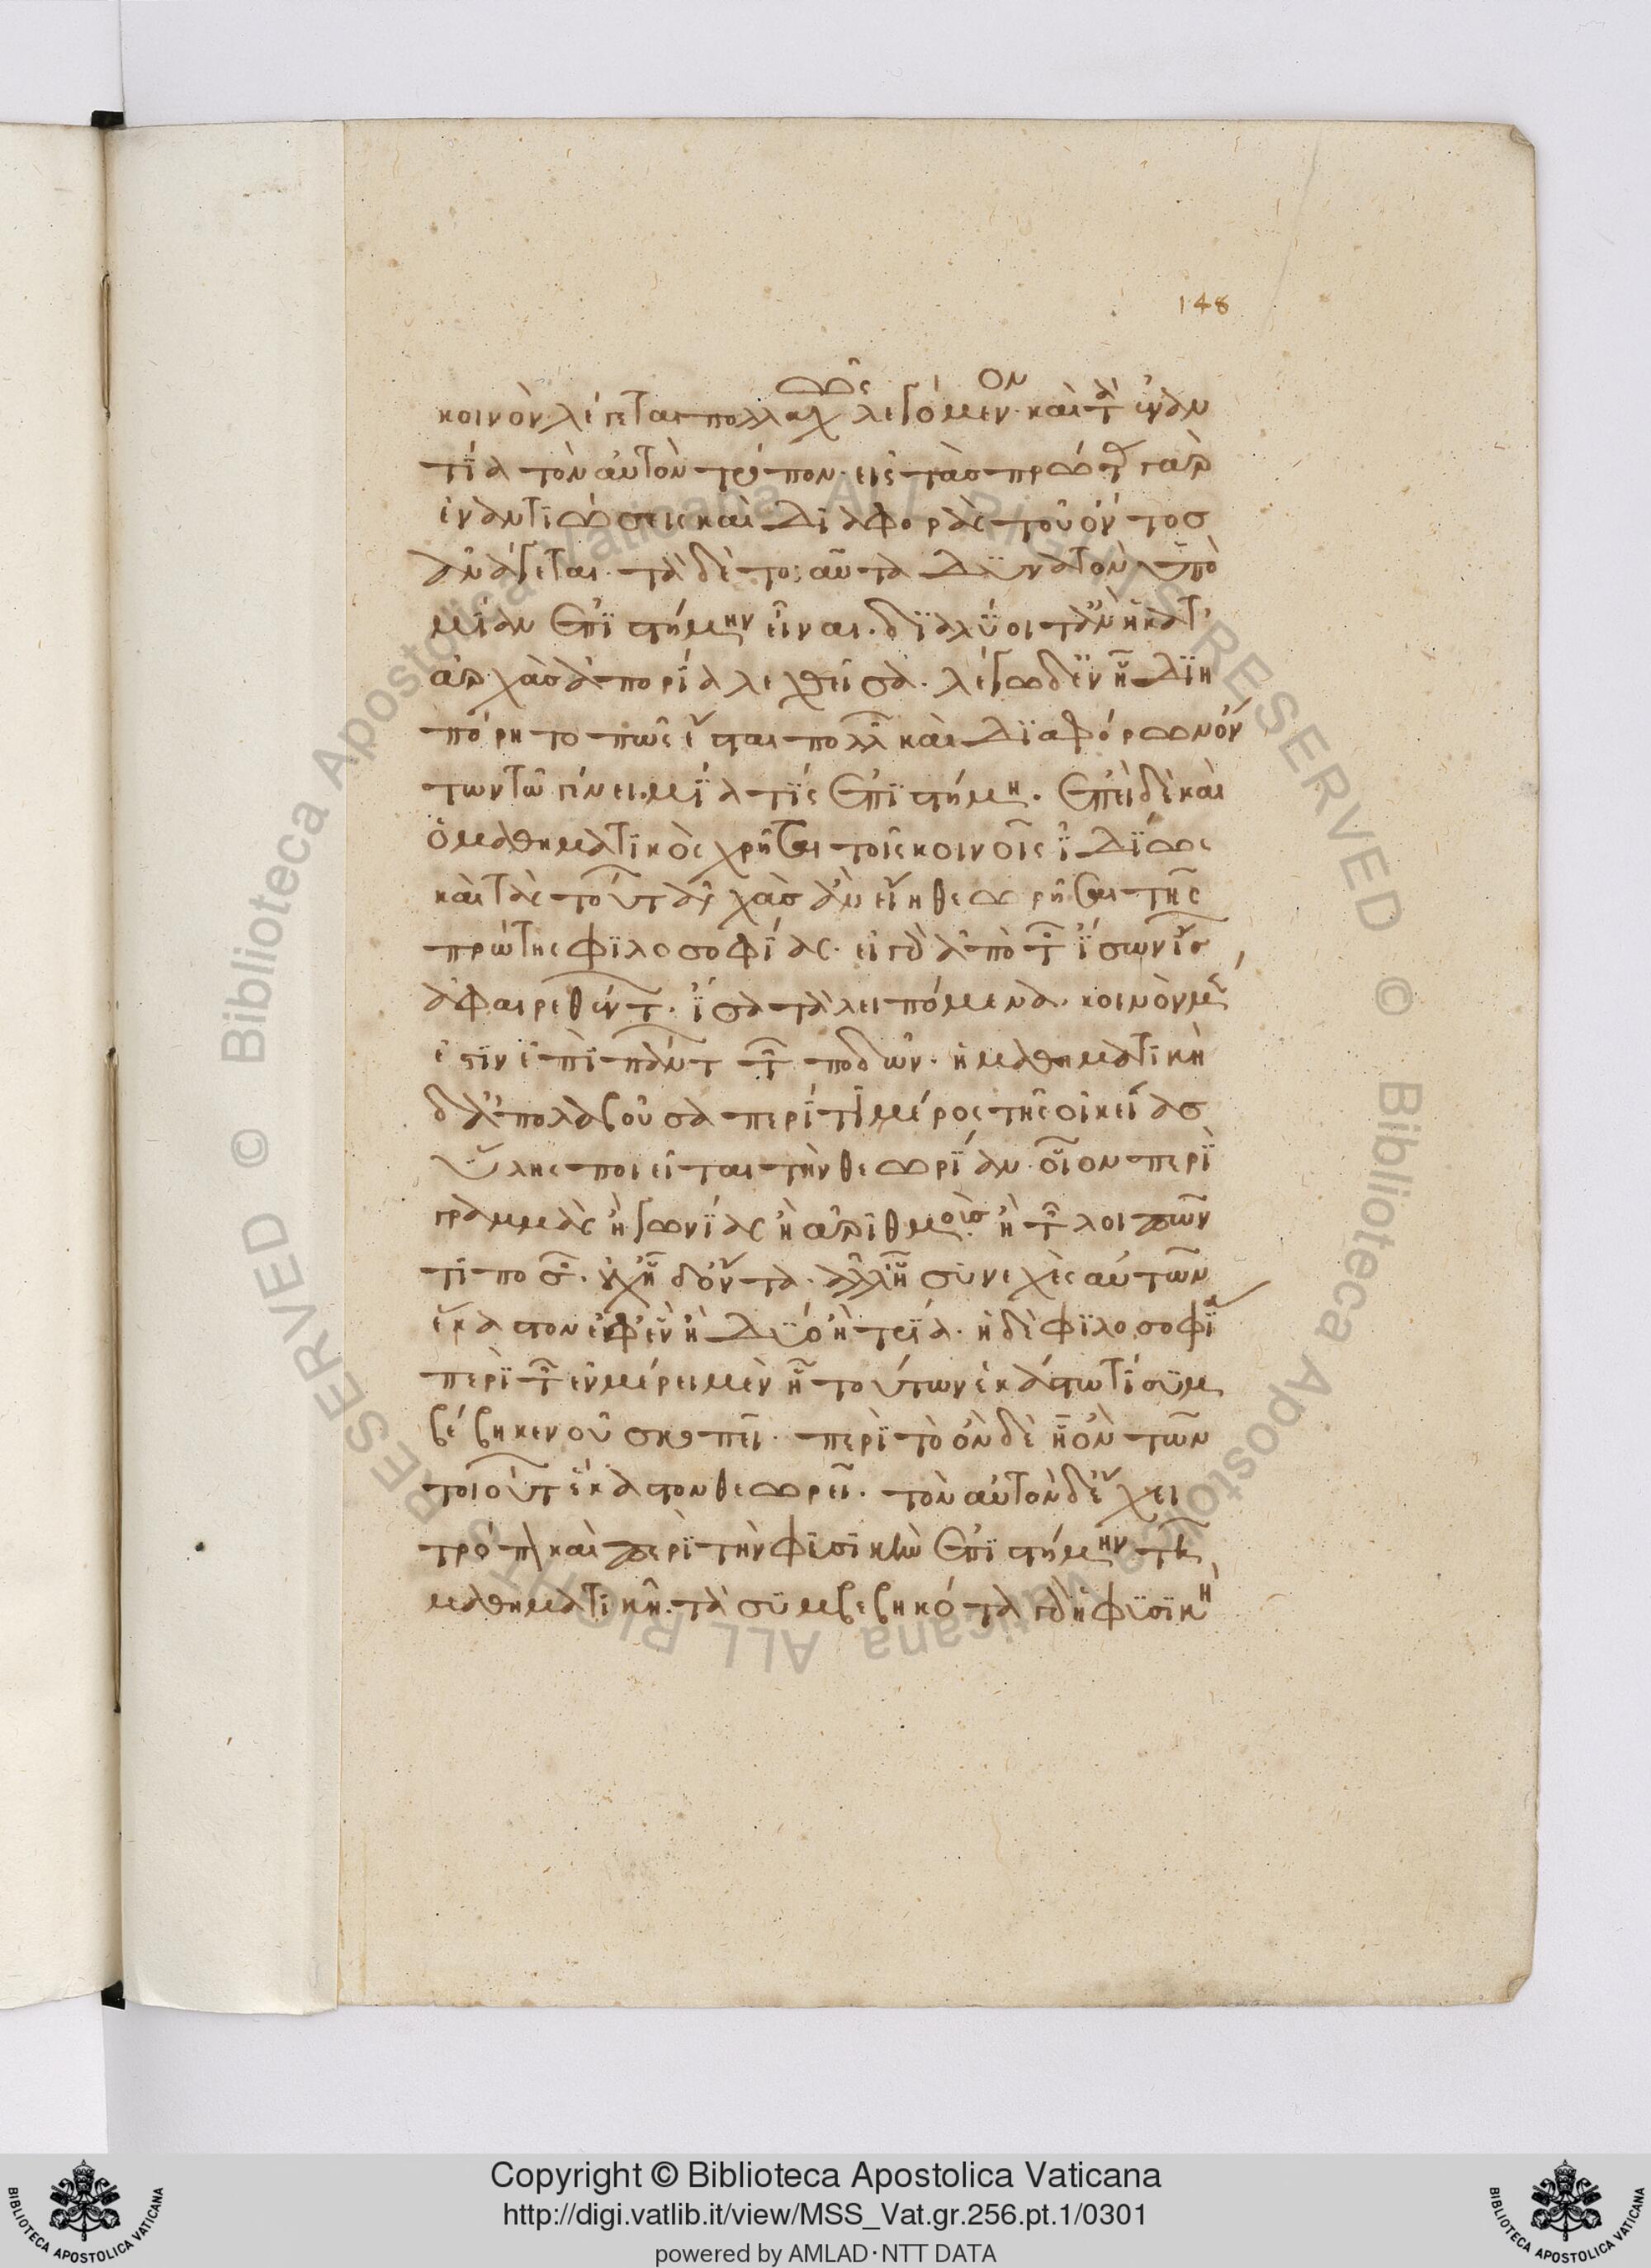 148
κοινὸν λέγεται πολλαχῶς λεγόμενον· καὶ τἀναν
τία τὸν αὐτὸν τρόπον· εἰς τὰς πρώτας γὰρ
ἐναντιώσεις καὶ διαφορὰς τοῦ ὄντος
ἀνάγεται· τὰ δὲ τοιαῦτα δυνατὸν ὑπὸ
μίαν ἐπιστήμην εἶναι· διαλύοιτ' ἂν ἡ κατ'
ἀρχὰς ἀπορία λεχθεῖσα· λέγω δ' ἐν ᾗ διη
πόρητο πῶς ἔσται πολλῶν καὶ διαφόρων ὄν
των τῷ γένει μία τις ἐπιστήμη· ἐπεὶ δὲ καὶ
ὁ μαθηματικὸς χρῆται τοῖς κοινοῖς ἰδίως
καὶ τὰς τούτων ἀρχὰς ἂν εἴη θεωρῆσαι τῆς
πρώτης φιλοσοφίας· εἰ γὰρ ἀπὸ τῶν ἴσων ἴσων
ἀφαιρεθέντων· ἴσα τὰ λειπόμενα· κοινὸν μέν
ἐστιν ἐπὶ πάντων τῶν ποσῶν· ἡ μαθηματικὴ
δ' ἀπολαβοῦσα περί τι μέρος τῆς οἰκείας
ὕλης ποιεῖται τὴν θεωρίαν· οἷον περὶ
γραμμὰς ἢ γωνίας ἢ ἀριθμοὺς ἢ τῶν λοιπῶν
τι ποσῶν· οὐχ ᾗ δ' ὄντα· ἀλλ' ᾗ συνεχὲς αὐτῶν
ἕκαστον ἐφ' ἓν ἢ δύο ἢ τρία· ἡ δὲ φιλοσοφία
περὶ τῶν ἐν μέρει μὲν ᾗ τούτων ἑκάστῳ τι συμ
βέβηκεν οὐ σκοπεῖ· περὶ τὸ ὂν δὲ ᾗ ὂν τῶν
τοιούτων ἕκαστον θεωρεῖ· τὸν αὐτὸν δ' ἔχει
τρόπον καὶ περὶ τὴν φυσικὴν ἐπιστήμην τῇ
μαθηματικῇ· τὰ συμβεβηκότα γὰρ ἡ φυσικὴ
Copyright © Biblioteca Apostolica Vaticana
http://digi.vatlib.it/view/MSS_Vat.gr.256.pt.1/0301
powered by AMLAD·NTT DATA